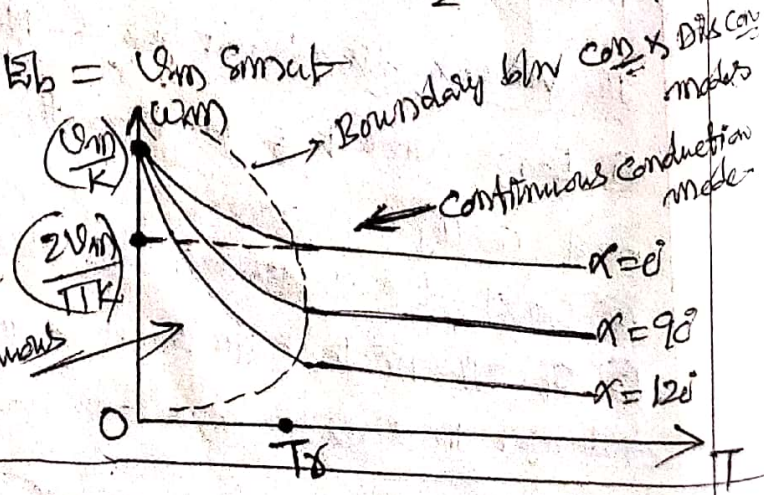 Eb = Vm Sinωt
ωm
Boundary b/w Con & DisCon
modes
(Vm/K)
Continuous Conduction
mode
(2Vm/πK)
α=0°
α=90°
nuous
α=120°
O
Tr
T